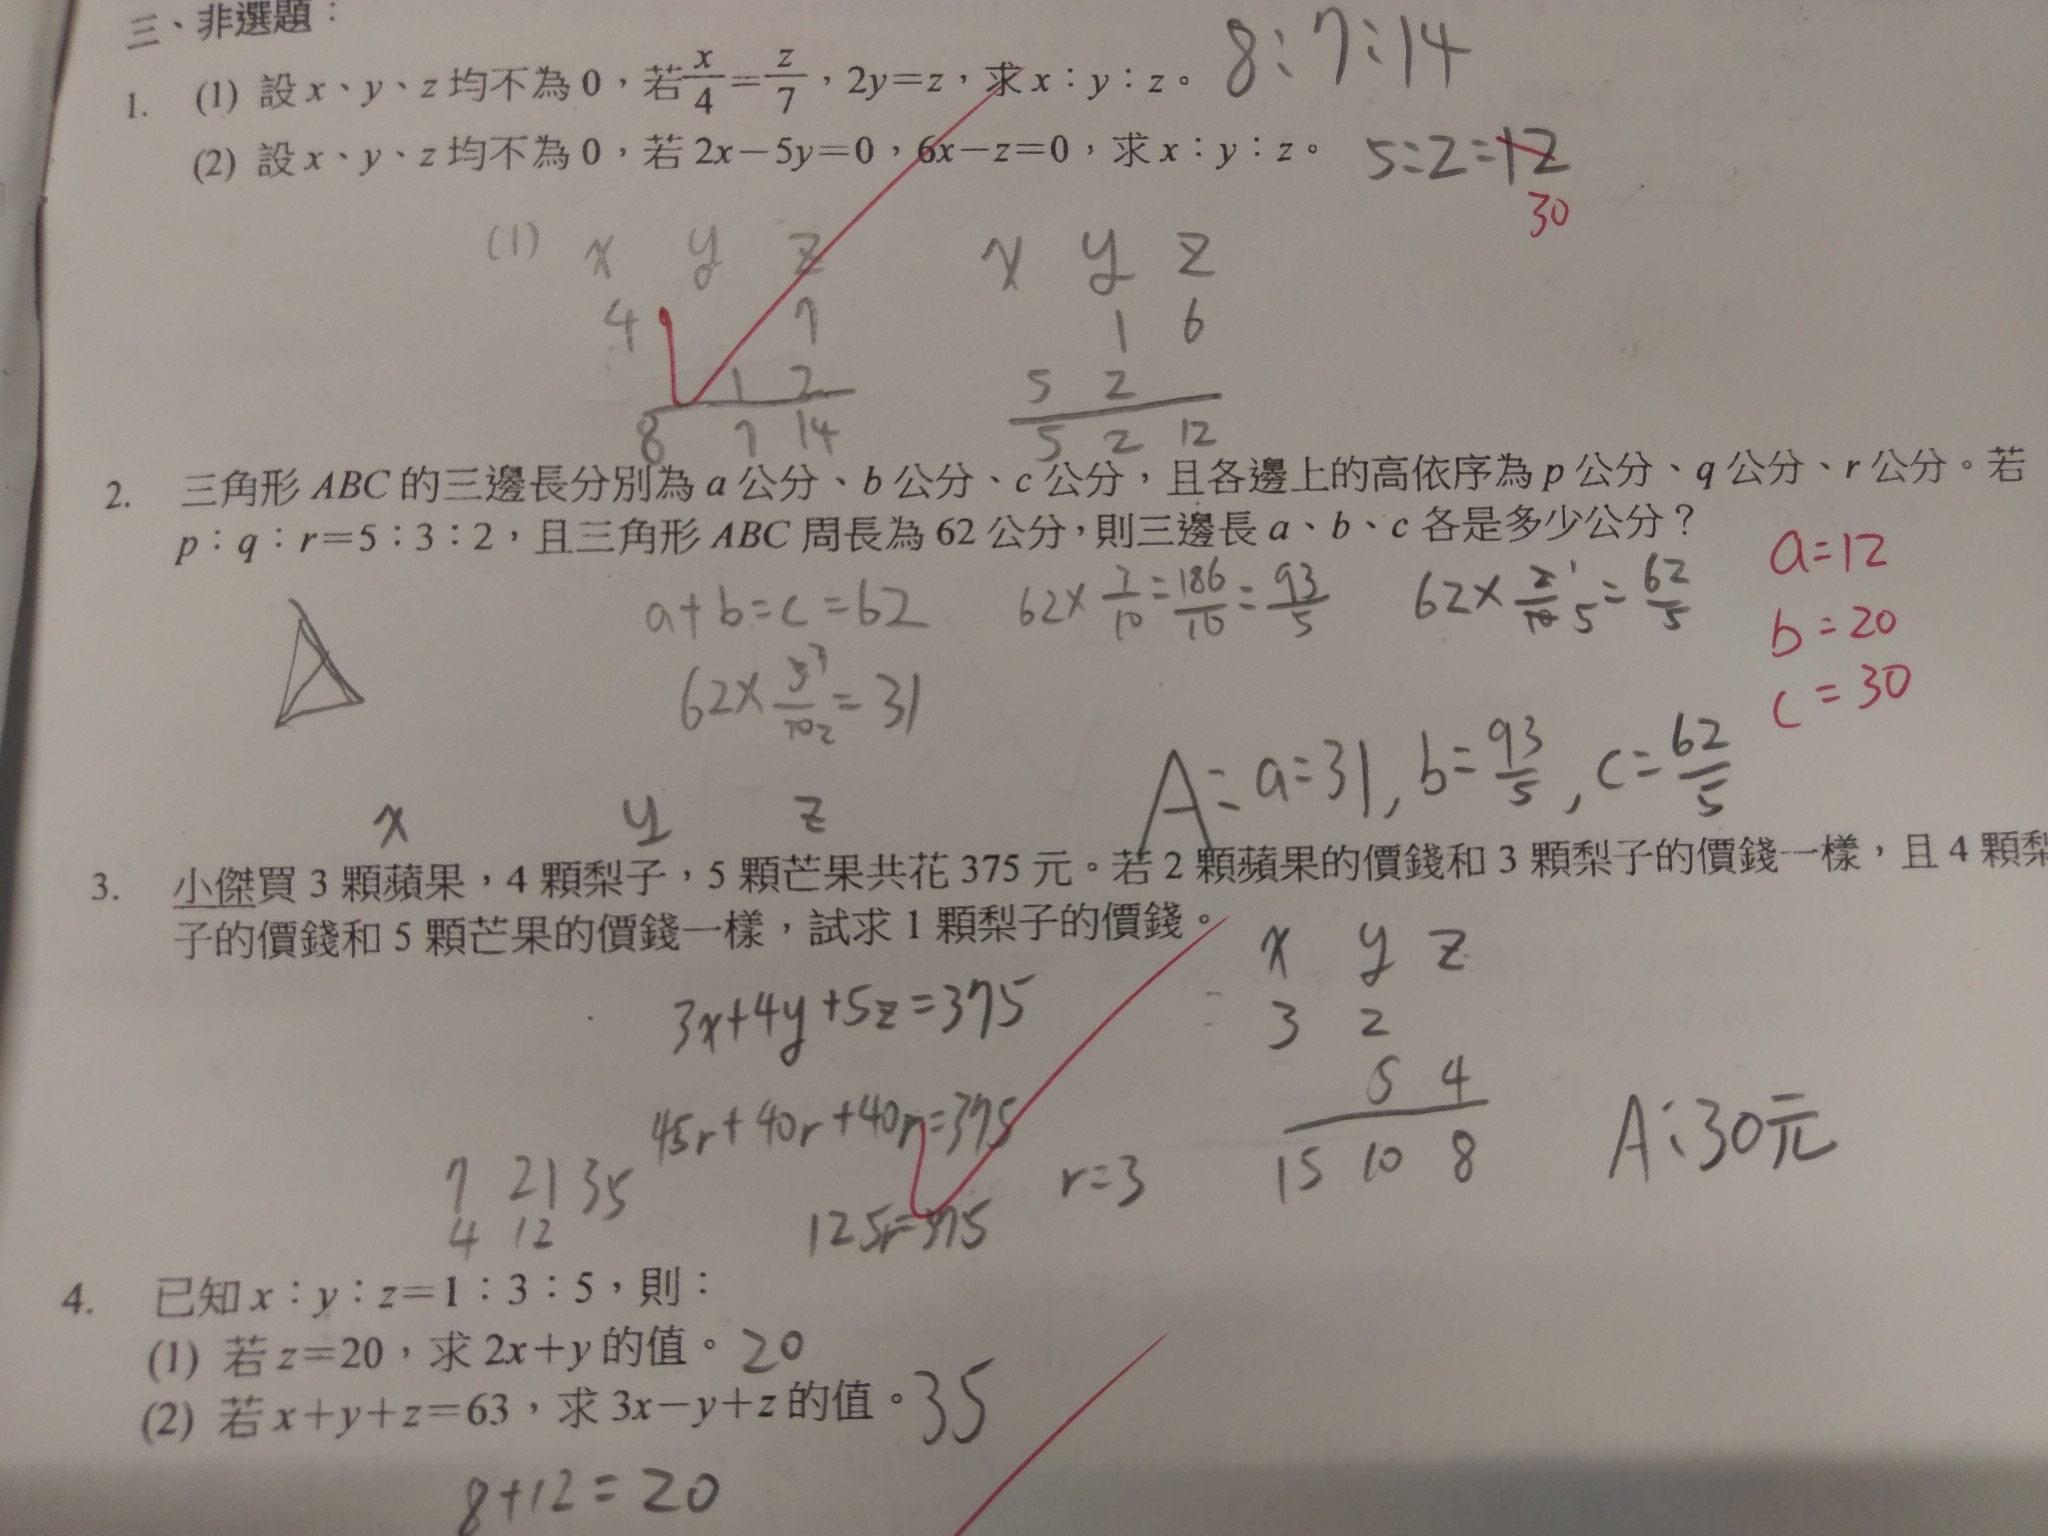 三、非選題：
1. (1) 設 x、y、z 均不為 0，若 x/4 = z/7，2y=z，求 x：y：z。 8:7:14
(2) 設 x、y、z 均不為 0，若 2x−5y=0，6x−z=0，求 x：y：z。 5:2=12
30
(1) x y z x y z
4 7 1 6
1 2 5 2
8 7 14 5 2 12
2. 三角形 ABC 的三邊長分別為 a 公分、b 公分、c 公分，且各邊上的高依序為 p 公分、q 公分、r 公分。若
p：q：r=5：3：2，且三角形 ABC 周長為 62 公分，則三邊長 a、b、c 各是多少公分？
a=12
b=20
c=30
a+b=c=62 62×3/10=186/10=93/5 62×2/10 1 5=62/5
62×5/10 2=31
A= a=31, b=93/5, c=62/5
x y z
3. 小傑買 3 顆蘋果，4 顆梨子，5 顆芒果共花 375 元。若 2 顆蘋果的價錢和 3 顆梨子的價錢一樣，且 4 顆梨
子的價錢和 5 顆芒果的價錢一樣，試求 1 顆梨子的價錢。
3x+4y+5z=375 x y z
3 2
45r+40r+40r=375 5 4
125r=375 r=3 15 10 8 A:30元
7 21 35
4 12
4. 已知 x：y：z=1：3：5，則：
(1) 若 z=20，求 2x+y 的值。 20
(2) 若 x+y+z=63，求 3x−y+z 的值。 35
8+12=20